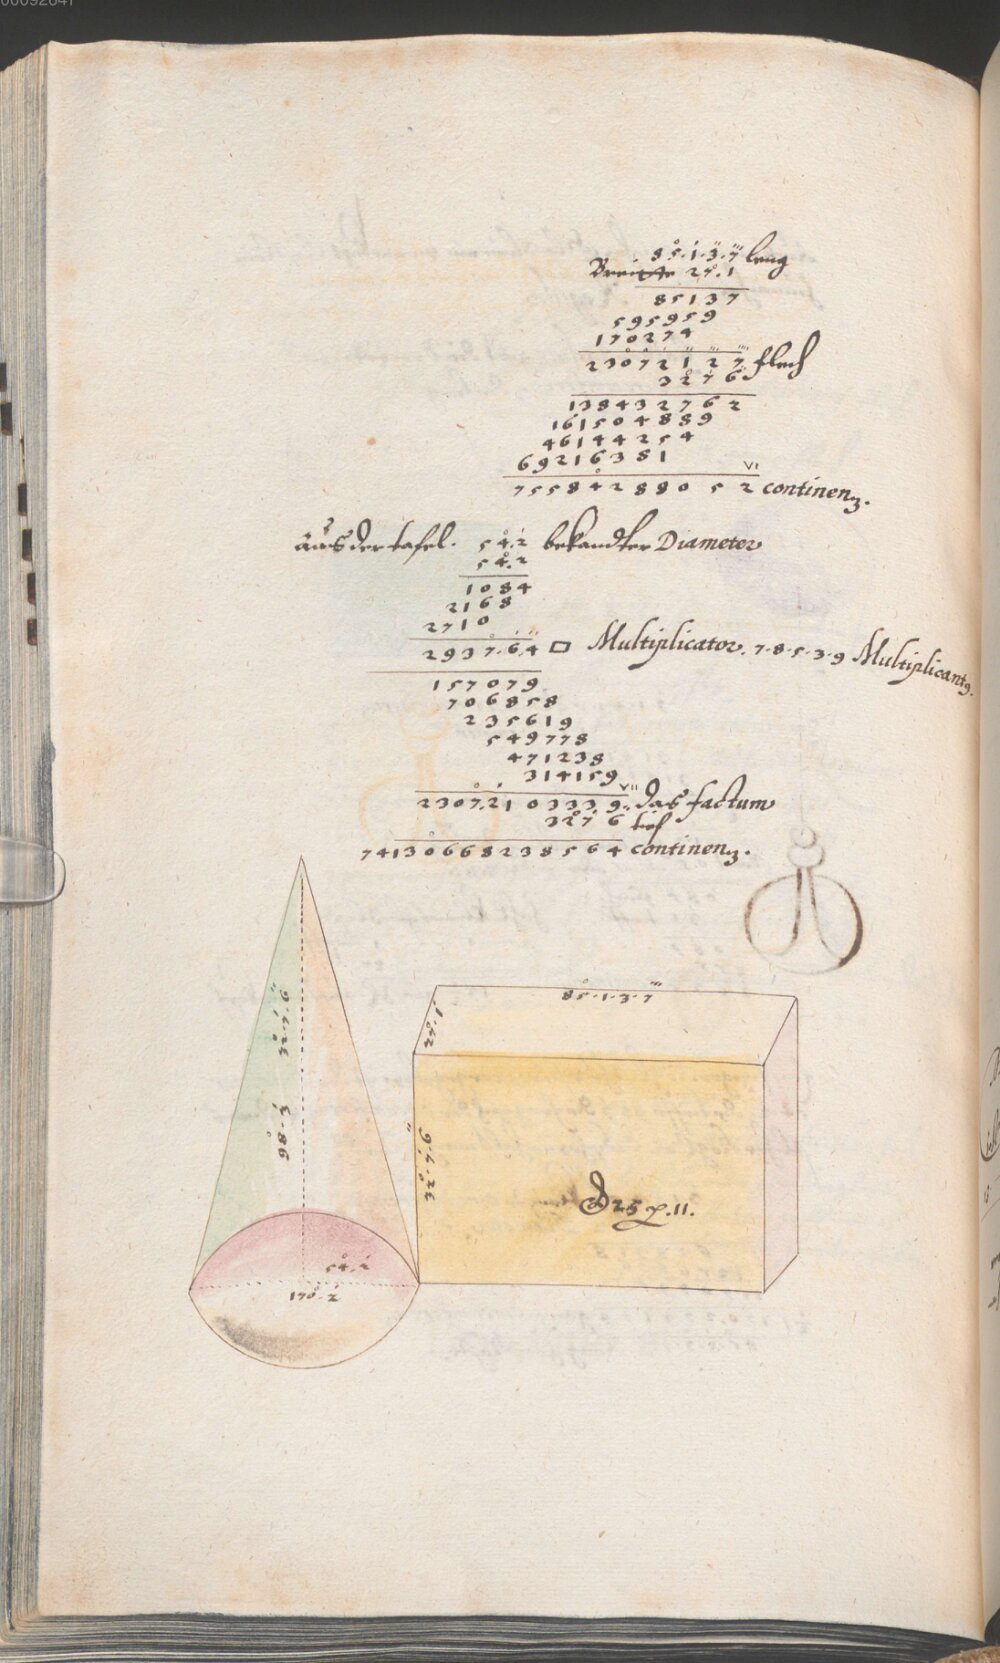 00092647
85.1.3.7 leng
Breitte 27.1
85137
595959
170274
2307212 7 flech
3276
13843 2762
161504889
46144254
69216381
VI
7558428805 2 continenz.
aus der tafel. 54.2 bekandter Diameter
54.2
1084
2168
2710
2937.6.4 □ Multiplicator. 7.8.5.3.9 Multiplicantz.
157079
706858
235619
549778
471238
314159
VII
2307.21 03339 das factum
3276 tief
741306682385 64 continenz.
85.1.3.7
27.1
32.7.6
98.3
32.7.6
825 p.11.
54.2
170.2